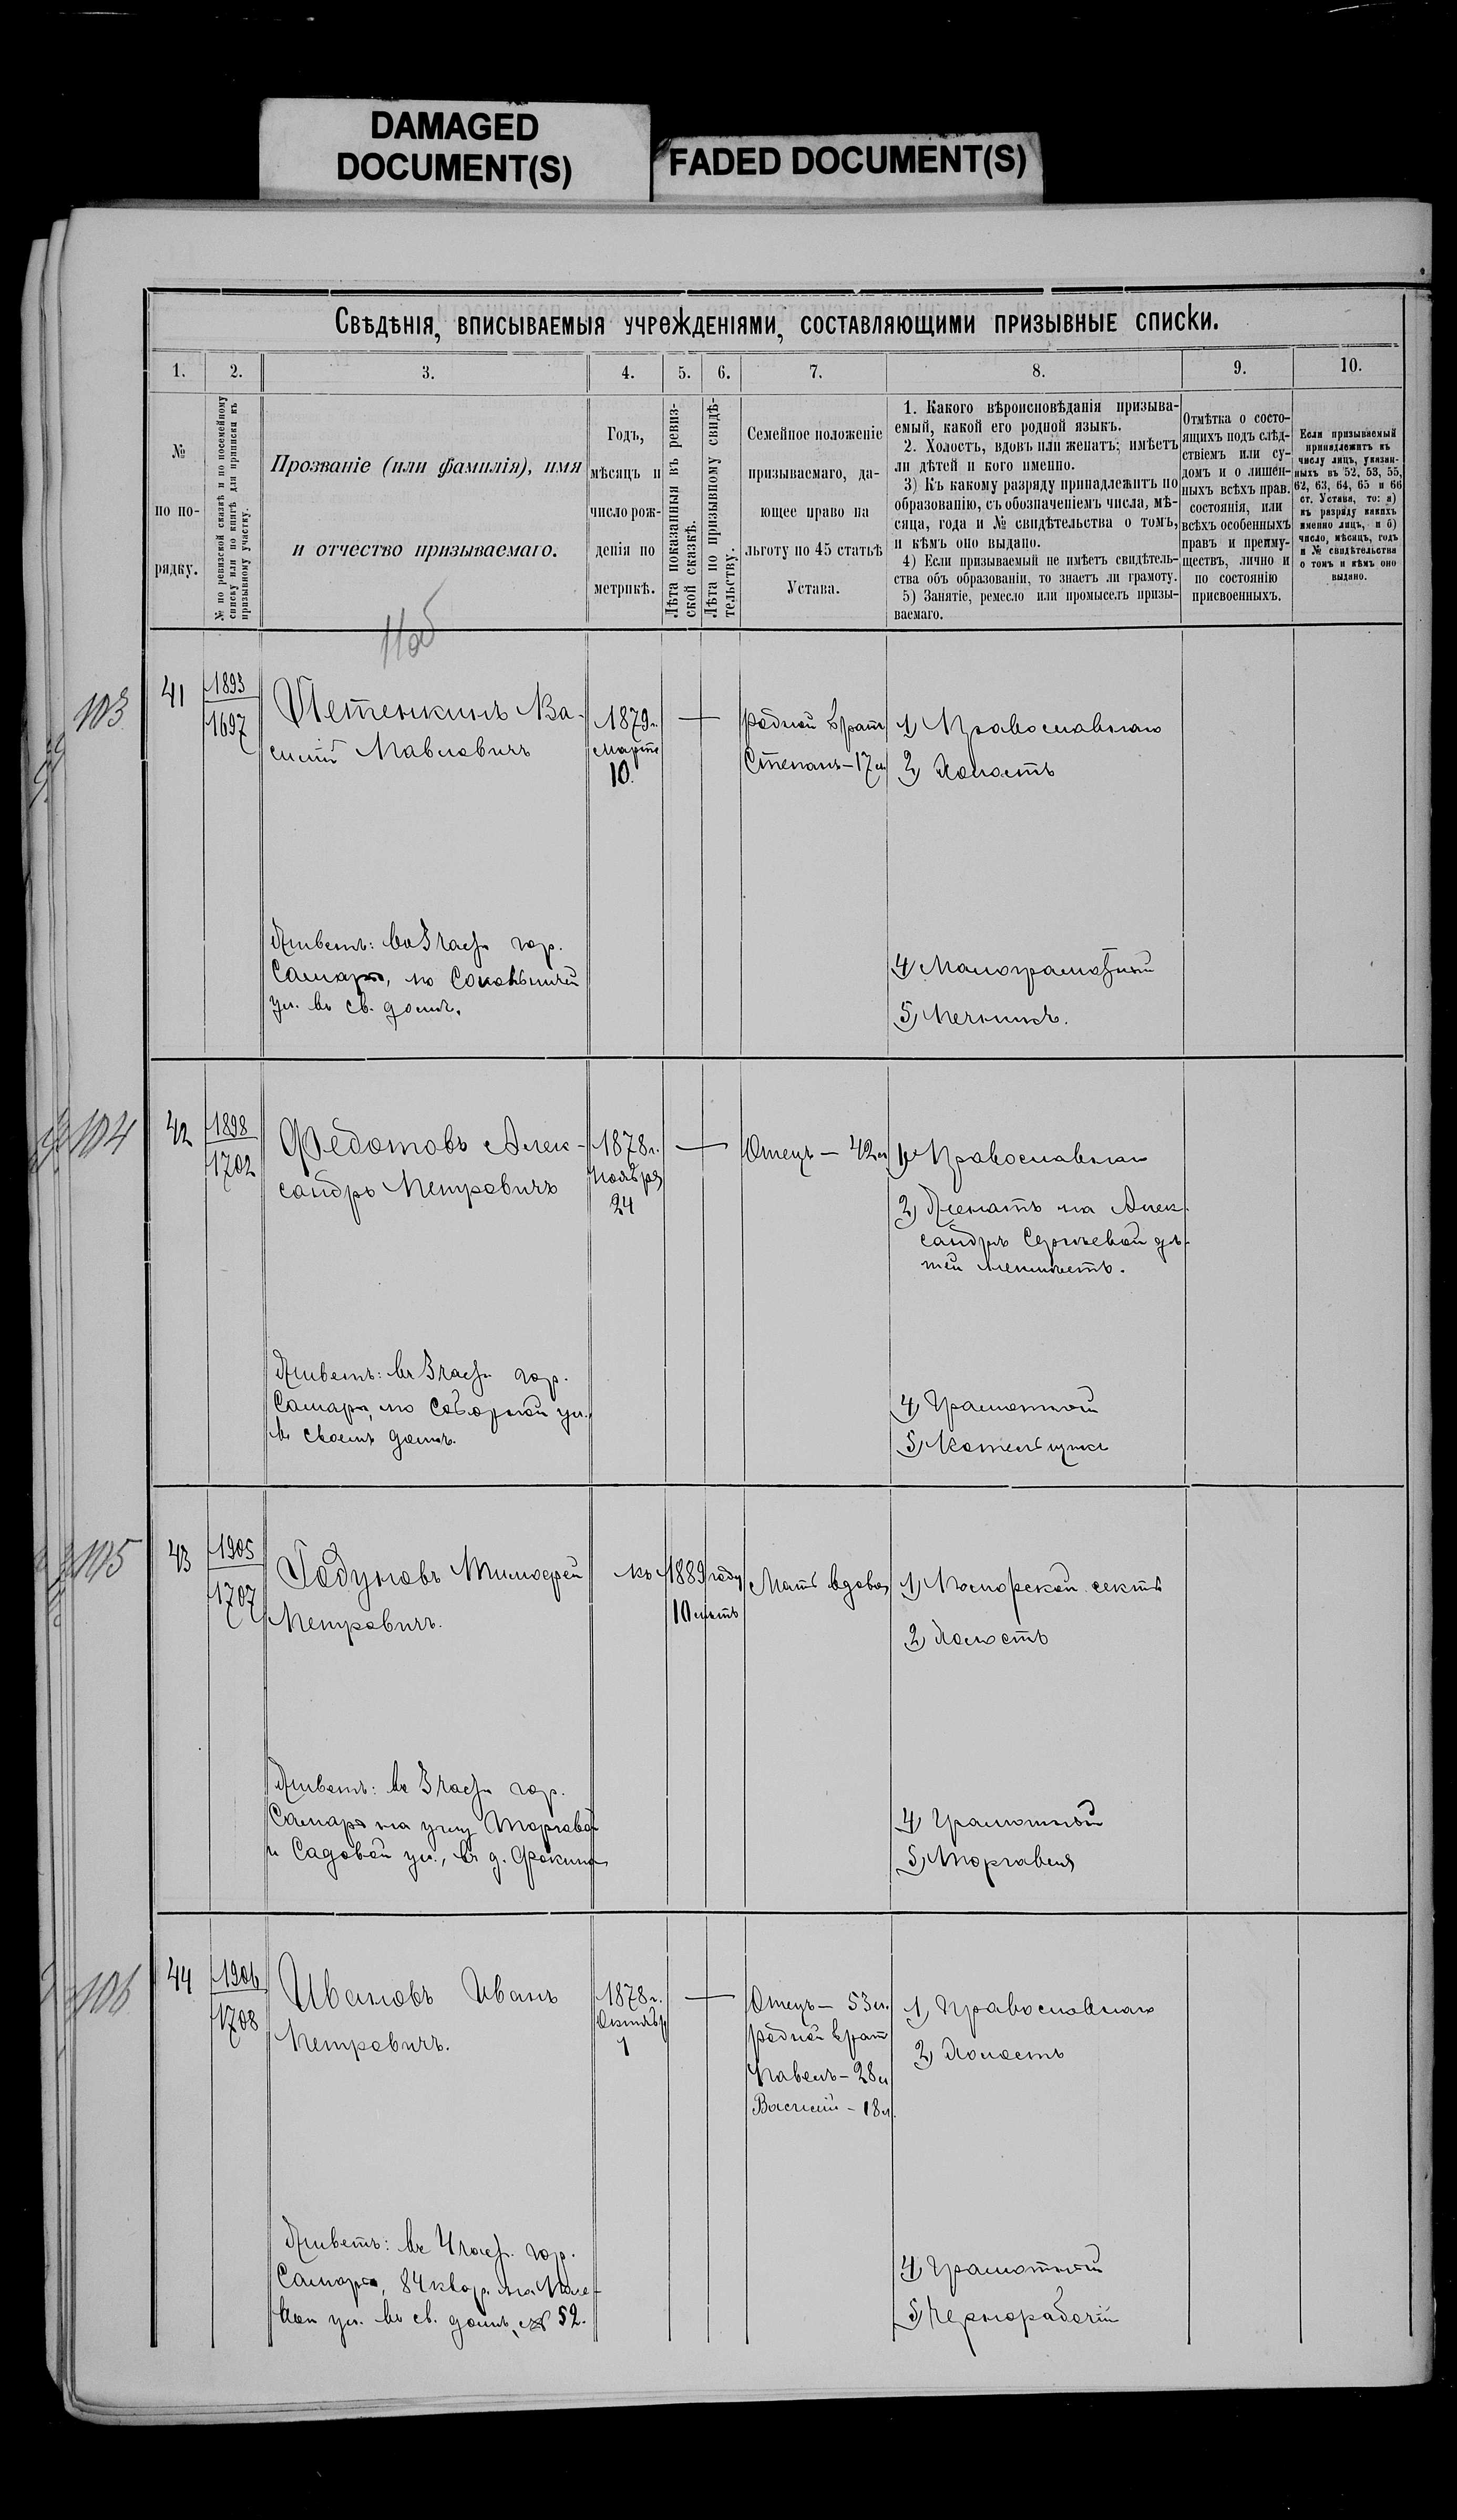 DAMAGED
DOCUMENT(S)
FADED DOCUMENT(S)
Свѣдѣнія, вписываемыя учрежденіями, составляющими призывные списки.
1. 2. 3. 4. 5. 6. 7. 8. 9. 10.
№
по по-
рядку.
№ по ревизской сказкѣ и по посемейному
списку или по книгѣ для приписки къ
призывному участку.
Прозваніе (или фамилія), имя
и отчество призываемаго.
Годъ,
мѣсяцъ и
число рож-
денія по
метрикѣ.
Лѣта показанныя въ ревиз-
ской сказкѣ.
Лѣта по призывному свидѣ-
тельству.
Семейное положеніе
призываемаго, да-
ющее право на
льготу по 45 статьѣ
Устава.
1. Какого вѣроисповѣданія призыва-
емый, какой его родной языкъ.
2. Холостъ, вдовъ или женатъ; имѣетъ
ли дѣтей и кого именно.
3) Къ какому разряду принадлежитъ по
образованію, съ обозначеніемъ числа, мѣ-
сяца, года и № свидѣтельства о томъ,
и кѣмъ оно выдано.
4) Если призываемый не имѣетъ свидѣтель-
ства объ образованіи, то знаетъ ли грамоту.
5) Занятіе, ремесло или промыселъ призы-
ваемаго.
Отмѣтка о состо-
ящихъ подъ слѣд-
ствіемъ или су-
домъ и о лишен-
ныхъ всѣхъ прав.
состоянія, или
всѣхъ особенныхъ
правъ и преиму-
ществъ, лично и
по состоянію
присвоенныхъ.
Если призываемый
принадлежитъ къ
числу лицъ, указан-
ныхъ въ 52, 53, 55,
62, 63, 64, 65 и 66
ст. Устава, то: а)
къ разряду какихъ
именно лицъ, и б)
число, мѣсяцъ, годъ
и № свидѣтельства
о томъ и кѣмъ оно
выдано.
103
41
1893
1697
Ва-
силій Павловичъ
1879 г.
Марта
10.
родной братъ
Степанъ – 17 л
1) Православнаго
2) Холостъ
Живетъ: во 3 части гор.
Самары, по
ул. въ св. домѣ.
4) Малограмотный
5) Печникъ.
104
42
1898
1702
Федотовъ Алек-
сандръ Петровичъ
1878 г.
Ноября
24
Отецъ – 42 л
1) Православнаго
2) Женатъ на Алек-
сандрѣ Сергѣевой дѣ-
тей неимѣетъ.
Живетъ: въ 3 части гор.
Самары, по Соборной ул.
въ своемъ домѣ.
4) Грамотный
5) Котельщикъ
105
43
1905
1707
Годуновъ Тимофей
Петровичъ.
къ 1889 году
10 лѣтъ
Мать вдова
1) Поморской секты
2) Холостъ
Живетъ: въ 3 части гор.
Самары на углу Торговой
и Садовой ул., въ д. Фокина
4) Грамотный
5) Торговля
106
44
1906
1708
Ивановъ Иванъ
Петровичъ.
1878 г.
Октября
1
Отецъ – 53 л.
родной братъ
Павелъ – 28 л
Василій – 18 л.
1) Православнаго
2) Холостъ
Живетъ: въ 4 части гор.
Самары, 84 квар. на Поле-
вой ул. въ св. домѣ, № 52.
4) Грамотный
5) Чернорабочій